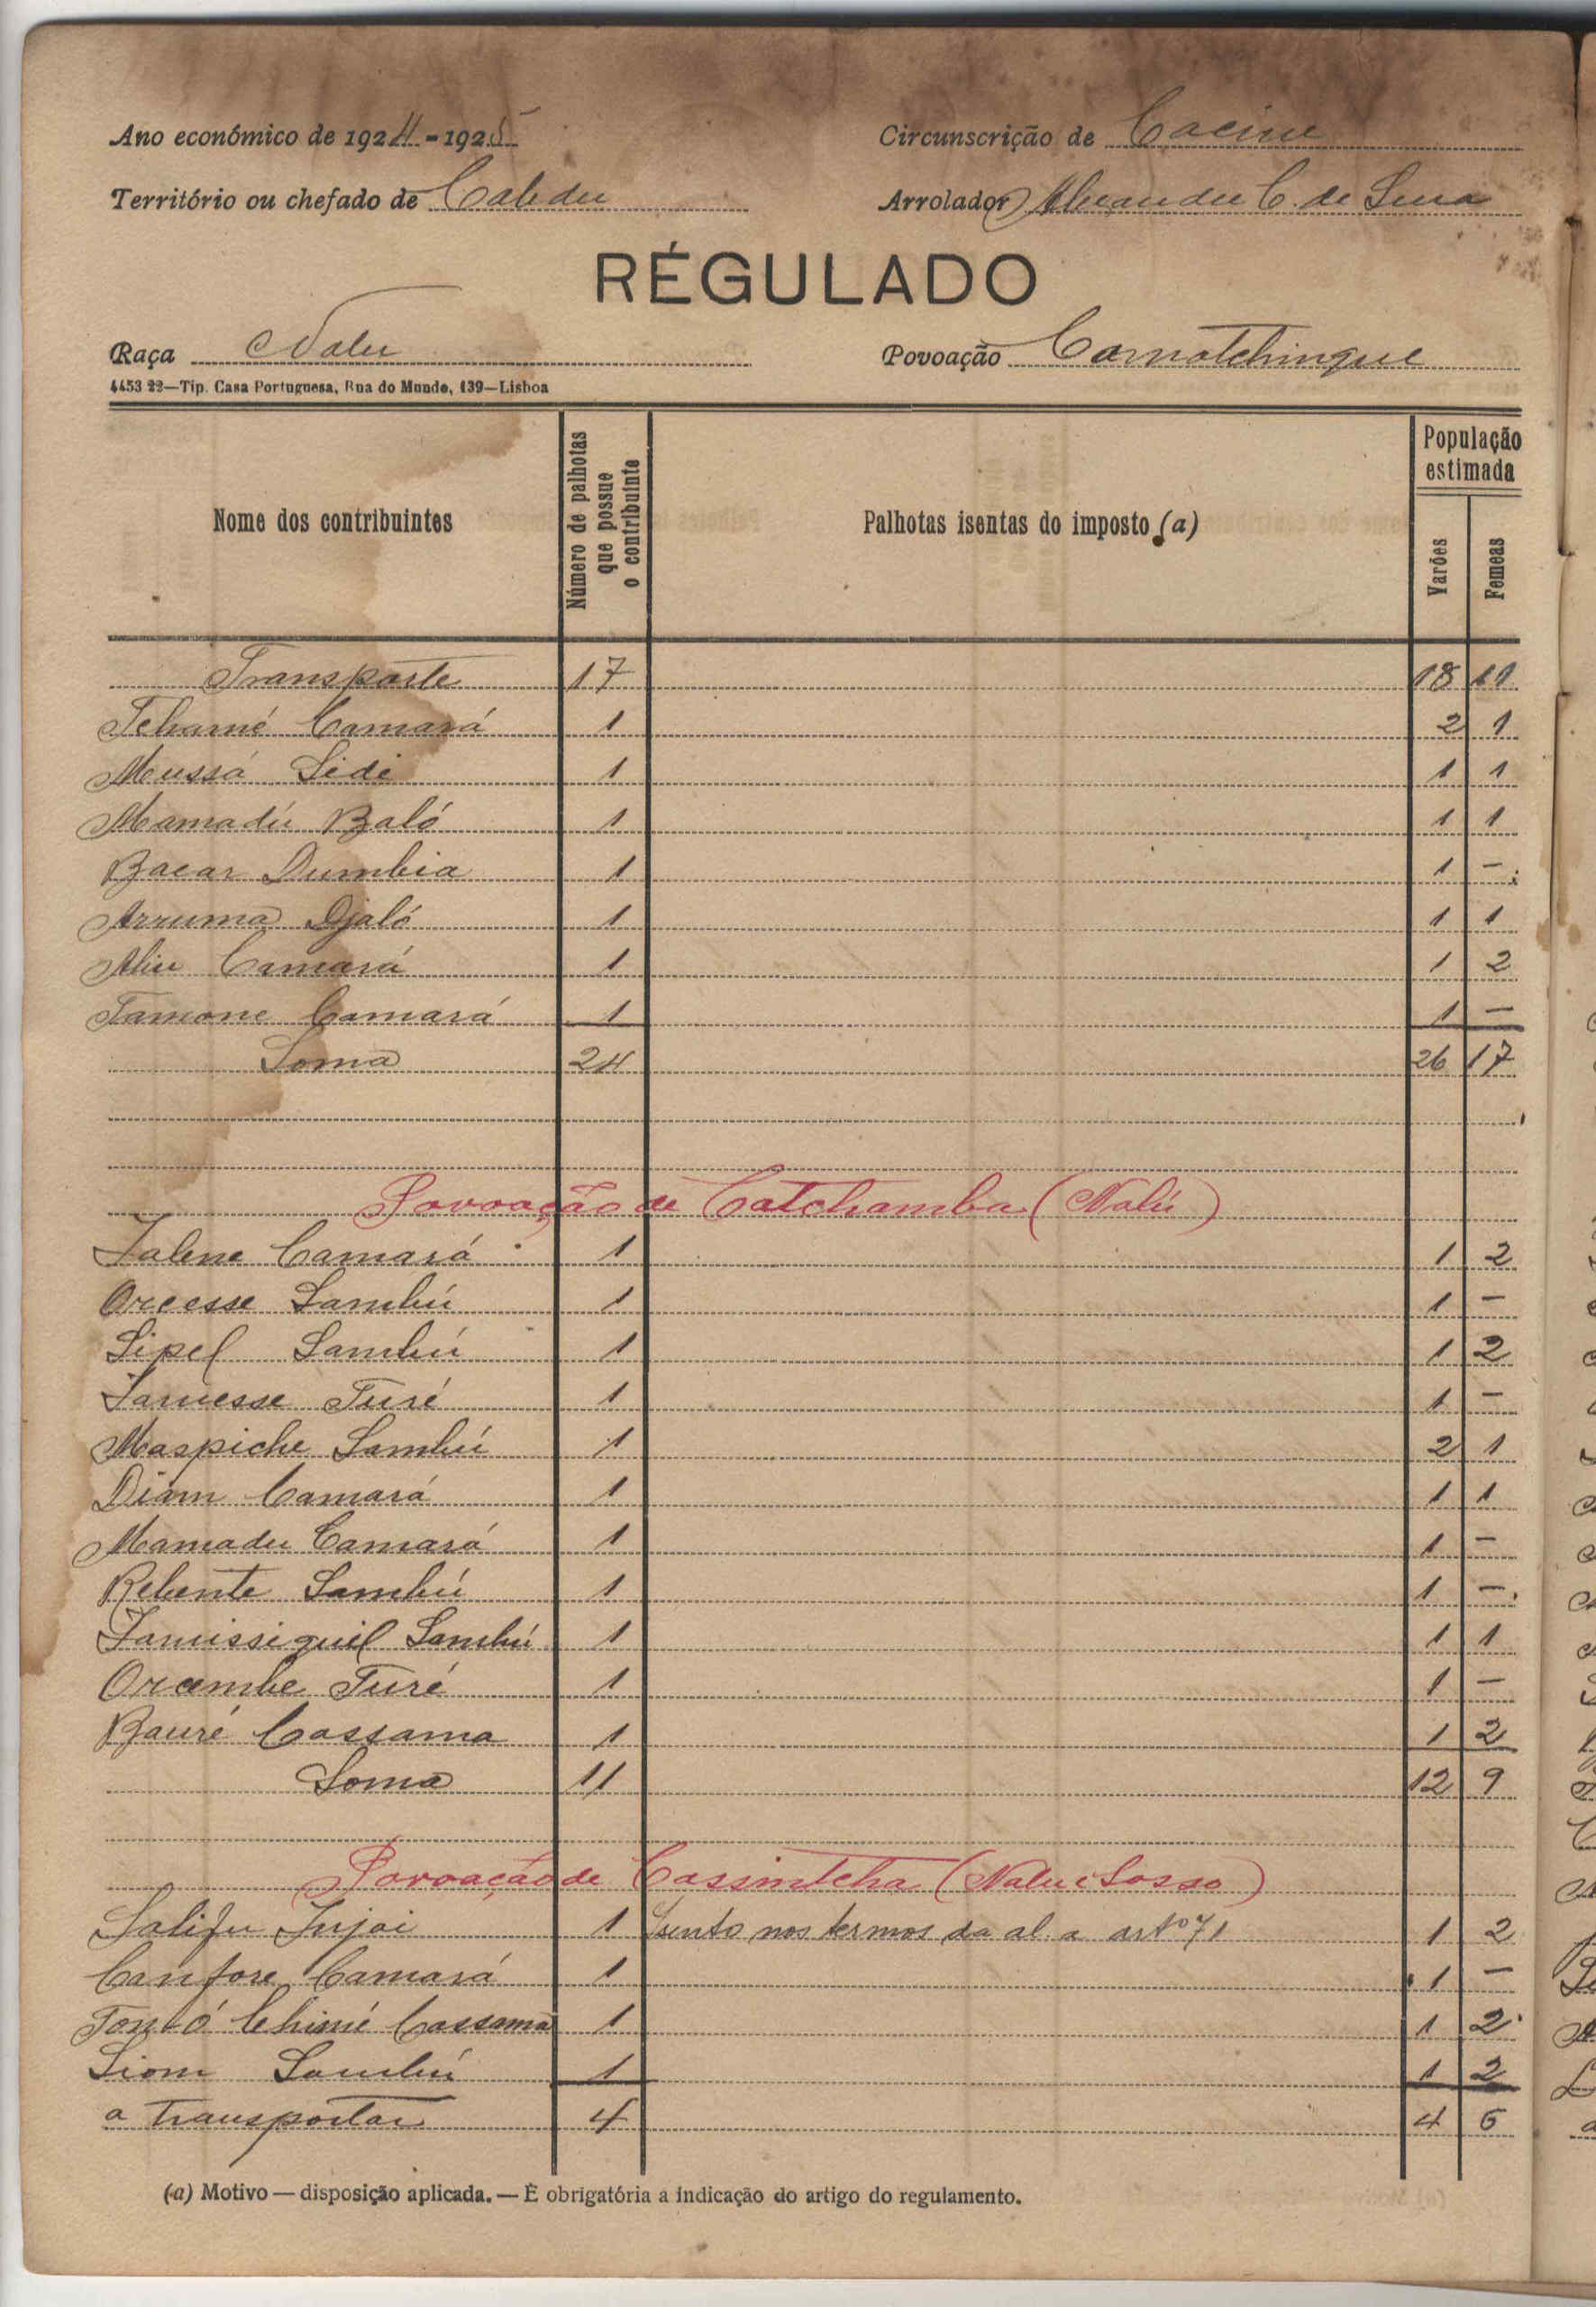 Ano económico de 1924-1925 Circunscrição de Cacine
Território ou chefado de Cabedu Arrolador Alexandre C. de Sena
RÉGULADO
Raça Nalu Povoação Camatchingue
4453 22—Tip. Casa Portuguesa, Rua do Mundo, 139—Lisboa
Nome dos contribuintes Número de palhotas que possue o contribuinte Palhotas isentas do imposto (a) População estimada Varões Femeas
Transporte 17 18 11
Tchamé Camará 1 2 1
Mussá Sidi 1 1 1
Mamadú Baló 1 1 1
Bacar Dumbia 1 1 —
Arruma Djaló 1 1 1
Aliu Camará 1 1 2
Tamone Camará 1 1 —
Soma 24 26 17
Povoação de Catchamba (Nalú)
Jalene Camará 1 1 2
Orcesse Sambú 1 1 —
Sipel Sambú 1 1 2
Turé 1 1 —
Maspiche Sambú 1 2 1
Diam Camará 1 1 1
Mamadu Camará 1 1 —
Rebente Sambú 1 1 —
Sambú 1 1 1
Orcembe Turé 1 1 —
Bauré Cassama 1 1 2
Soma 11 12 9
Povoação de Cassintcha (Nalu e Sosso)
Salifu Injai 1 Isento nos termos da al. a artº 71 1 2
Canfore Camará 1 1 —
Ton-ó Chimé Cassama 1 1 2
Siom Sambú 1 1 2
a transportar 4 4 6
(a) Motivo — disposição aplicada. — É obrigatória a indicação do artigo do regulamento.